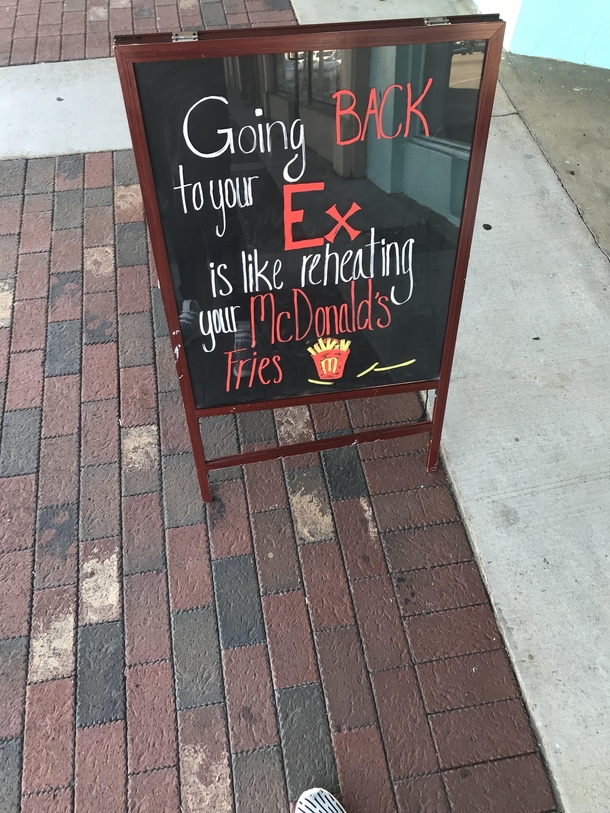 Going BACK
to your Ex
is like reheating
your McDonald's
Fries
M